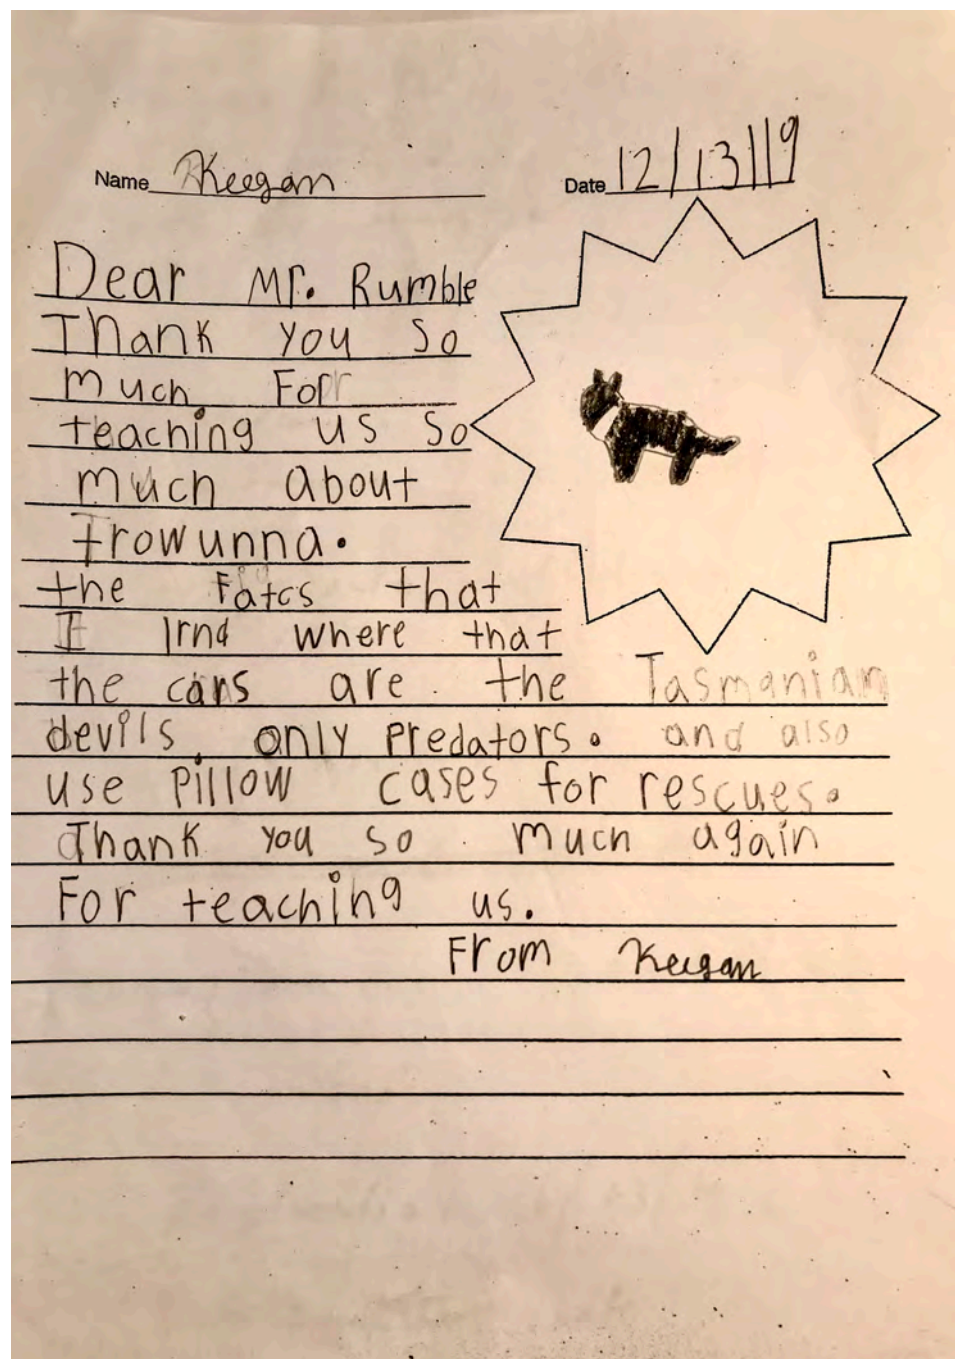 Name Keegan
Date 12/13/19
Dear Mr. Rumble
Thank you so
much For
teaching us so
much about
trowunna.
the Fatcs that
I lrnd where that
the cars are the Tasmanian
devils, only predators. and also
use pillow cases for rescues.
Thank you so much again
For teaching us.
From Keegan